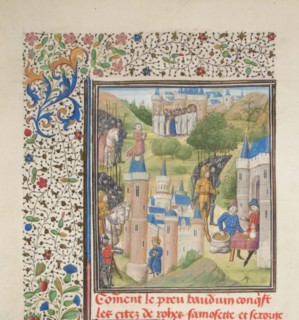 Coment le preu bauduin conq̃st
les citez de rohes samosette et seroige